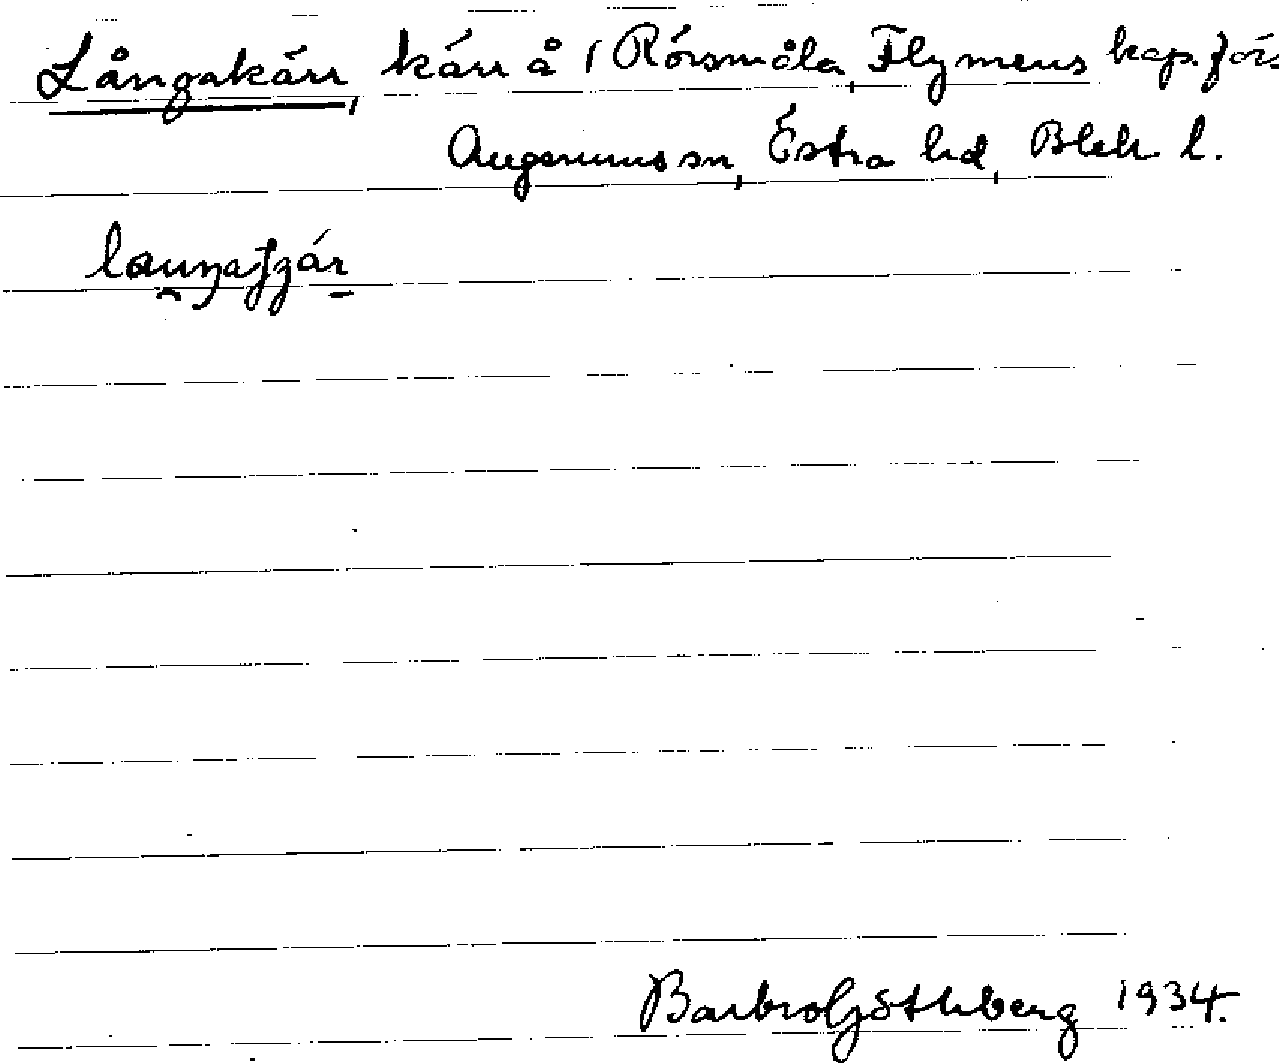 Långakärr, kärr å 1 Rörsmåla, Flymens kap.förs
Augerums sn, Östra hd, Blek. l.
Barbro Göthberg 1934.